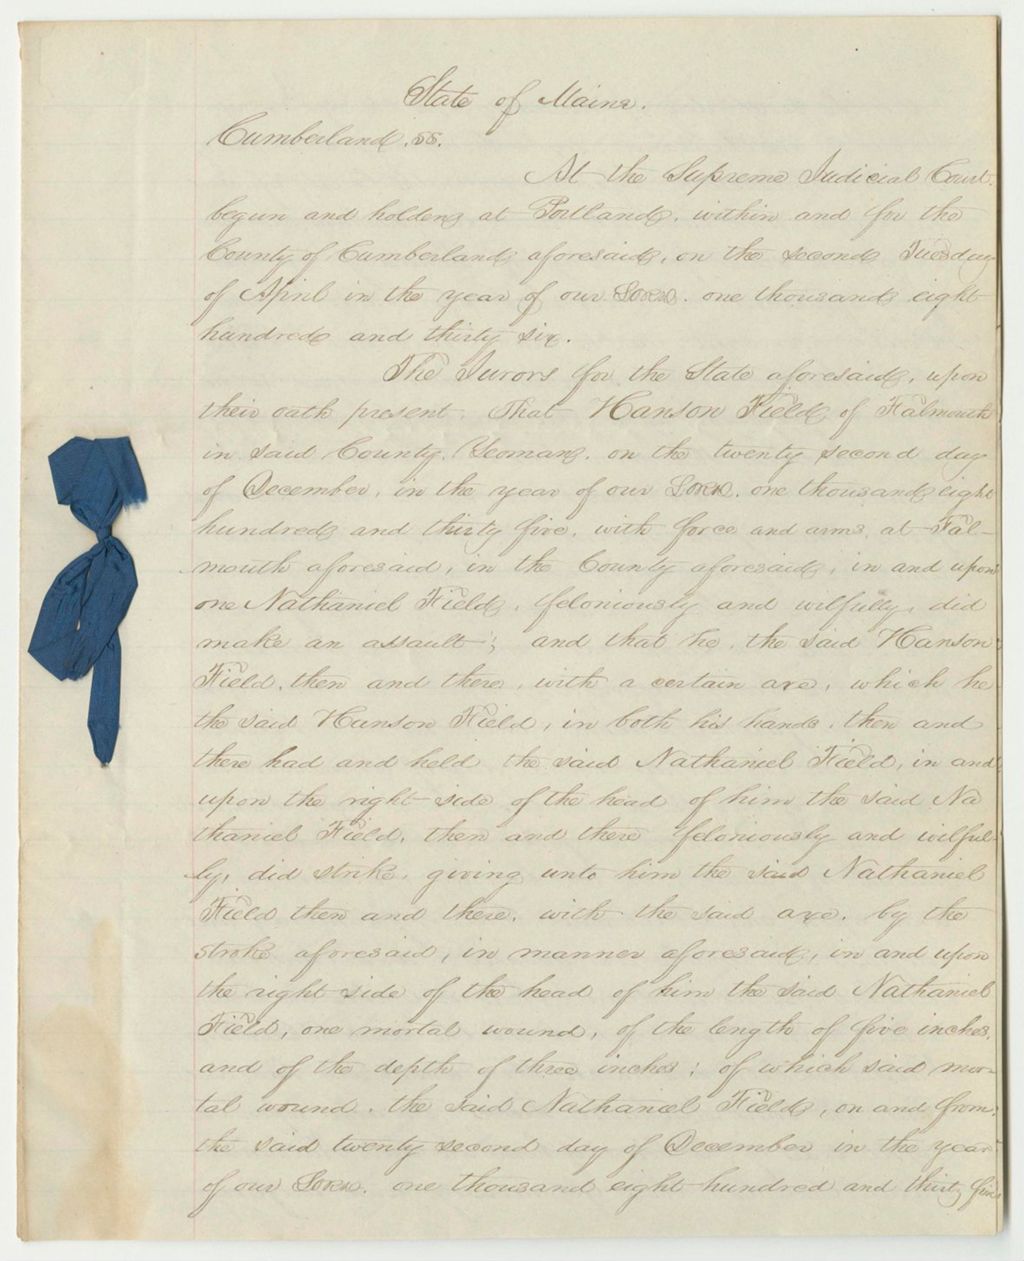 State of Maine.
Cumberland. ss.
At the Supreme Judicial Court.
begun and holden at Portland, within and for the
County of Cumberland aforesaid, on the second Tuesday
of April in the year of our Lord. one thousand eight
hundred and thirty six.
The Jurors for the State aforesaid, upon
their oath present. That Hanson Field of Falmouth
in said County, Yeoman, on the twenty second day
of December, in the year of our Lord, one thousand eight
hundred and thirty five, with force and arms, at Fal-
mouth aforesaid, in the County aforesaid, in and upon
one Nathaniel Field, feloniously and wilfully, did
make an assault; and that he, the said Hanson
Field, then and there, with a certain axe, which he
the said Hanson Field, in both his hands, then and
there had and held the said Nathaniel Field, in and
upon the right side of the head of him the said Na
thaniel Field, then and there feloniously and wilful-
ly, did strike, giving unto him the said Nathaniel
Field then and there, with the said axe, by the
stroke aforesaid, in manner aforesaid, in and upon
the right side of the head of him the said Nathaniel
Field, one mortal wound, of the length of five inches,
and of the depth of three inches; of which said mor-
tal wound, the said Nathaniel Field, on and from
the said twenty second day of December in the year
of our Lord, one thousand eight hundred and thirty five